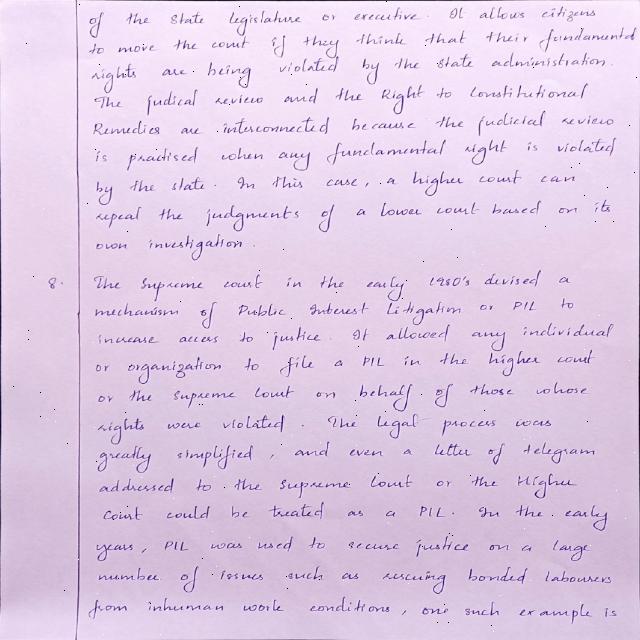 of the State legislature or executive. It allows citizens
to move the court if they think that their fundamental
rights are being violated by the state administration.
The judical review and the Right to Constitutional
Remedies are interconnected because the judicial review
is practised when any fundamental right is violated
by the state. In this case, a higher court can
repeal the judgments of a lower court based on its
own investigation.
8. The Supreme court in the early 1980's devised a
mechanism of Public Interest Litigation or PIL to
increase access to justice. It allowed any individual
or organization to file a PIL in the higher court
or the Supreme Court on behalf of those whose
rights were violated. The legal process was
greatly simplified, and even a letter of telegram
addressed to the Supreme Court or the Higher
Court could be treated as a PIL. In the early
years, PIL was used to secure justice on a large
number of issues such as rescuing bonded labourers
from inhuman work conditions, one such example is